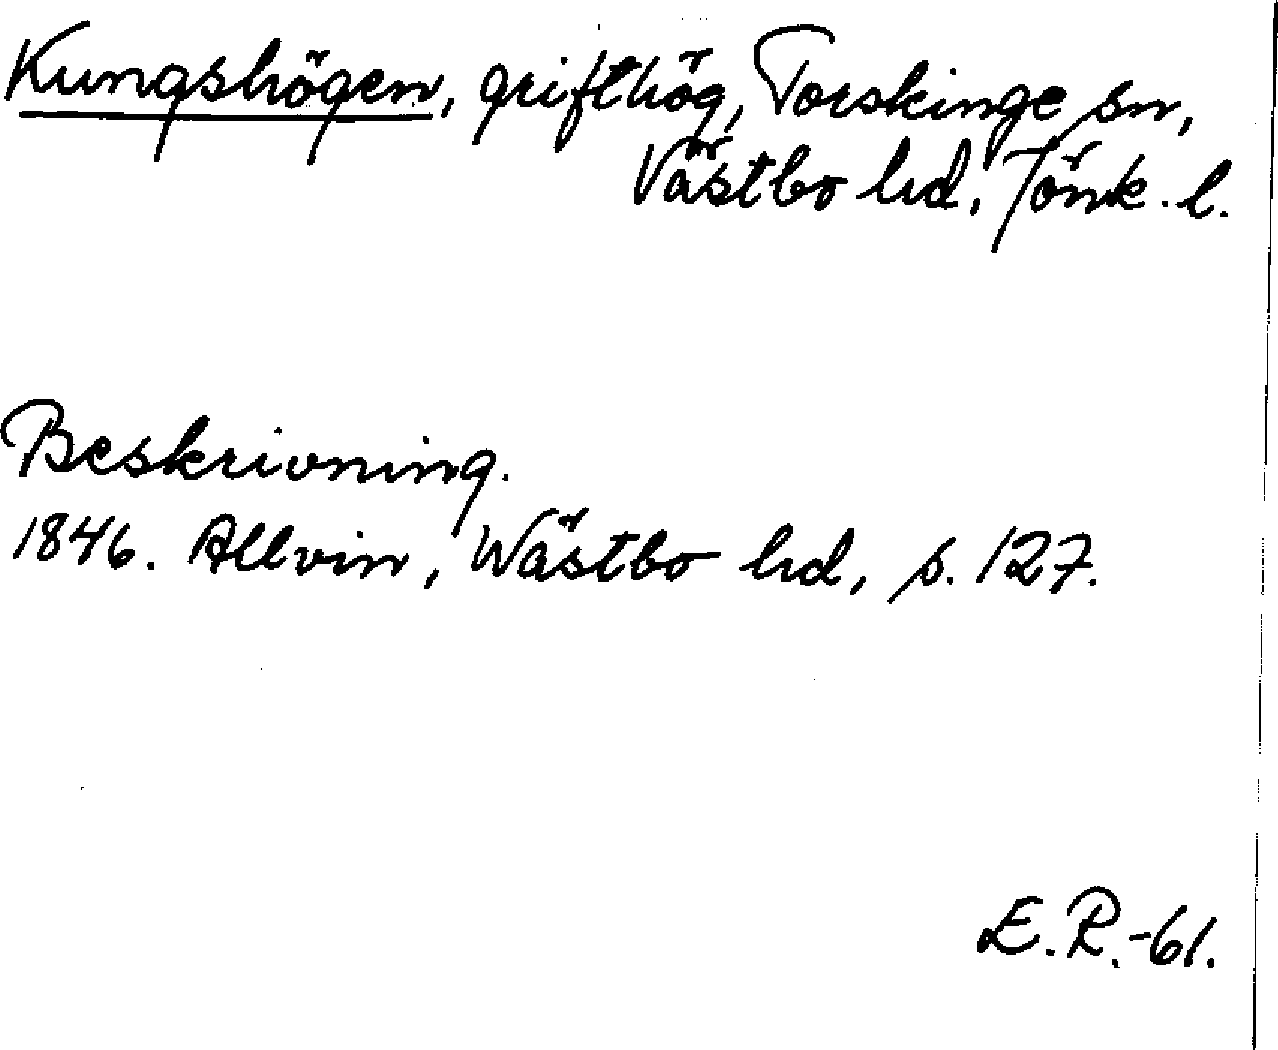 Kungshögen, grifthög, Torskinge sn,
Västbo hd, Jönk. l.
Beskrivning.
1846. Allvin, Wästbo hd, s. 127.
E.R.-61.